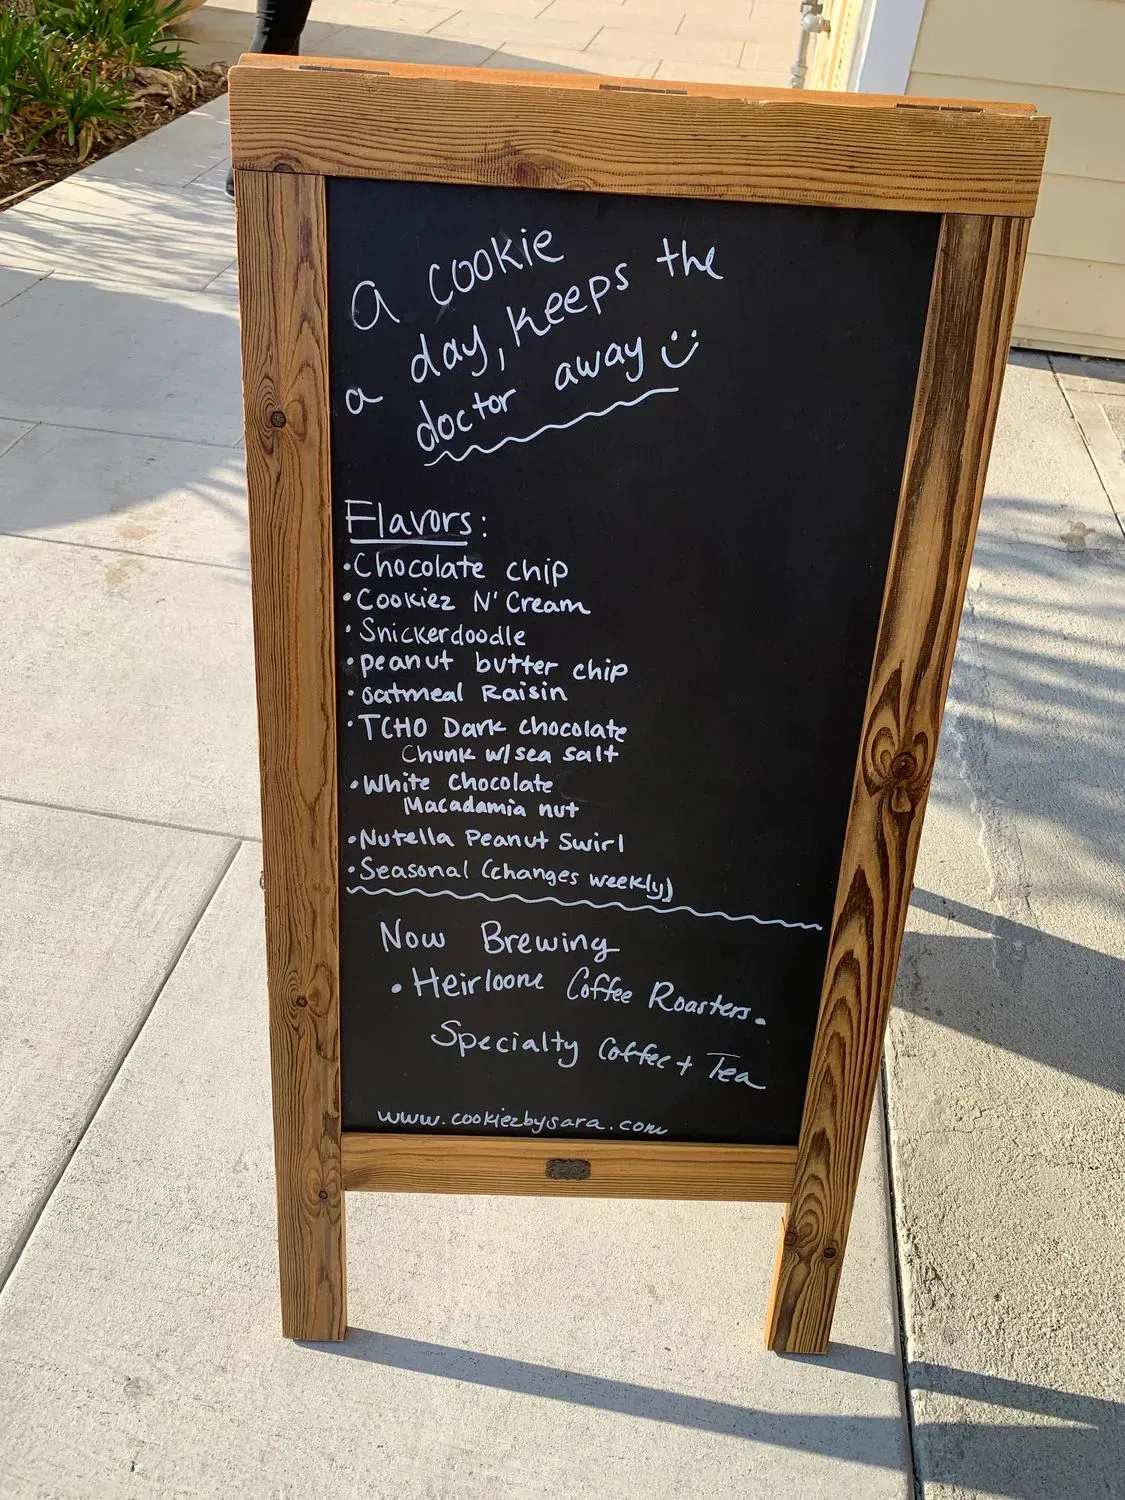 a cookie
a day, keeps the
doctor away
Flavors:
•Chocolate chip
•Cookiez N' Cream
•Snickerdoodle
•peanut butter chip
•oatmeal Raisin
•TCHO Dark chocolate
Chunk w/sea salt
•White Chocolate
Macadamia nut
•Nutella Peanut Swirl
•Seasonal (changes weekly)
Now Brewing
•Heirloom Coffee Roasters.
Specialty Coffee + Tea
www.cookiezbysara.com